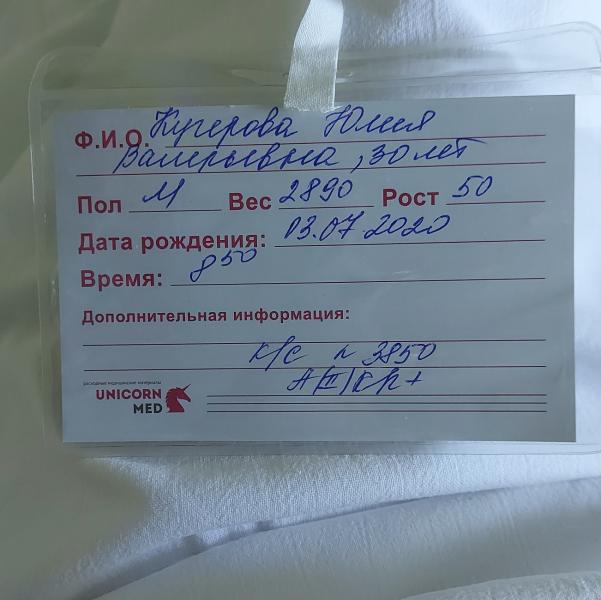 Ф.И.О. Кучерова Юлия
Валерьевна, 30 лет
Пол М Вес 2890 Рост 50
Дата рождения: 03.07 2020
Время: 8 50
Дополнительная информация:
к/с n 3850
A(II) Rh+
расходные медицинские материалы
UNICORN
MED